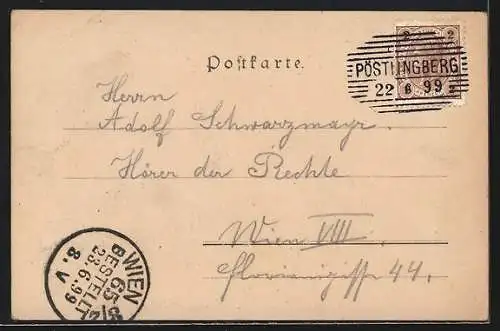 2 2
PÖSTLINGBERG
22 6 99
Postkarte.
Herrn
Adolf Schwarzmayr.
Hörer der Rechte
Wien VIII.
Florianigasse 44.
WIEN 8/2
B 65
BESTELLT
23.6.99
8. V